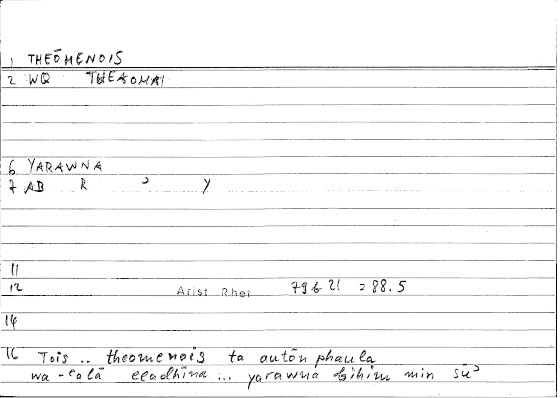 1 THEŌMENOIS
2 WQ THEAOMAI
6 YARAWNA
7 AB R ʾ Y
11
12 Arist Rhet 79b21 = 88.5
14
16 Tois .. theomenois ta autōn phaula
wa-ʿalā lladhīna ... yarawna bihim min sūʾ